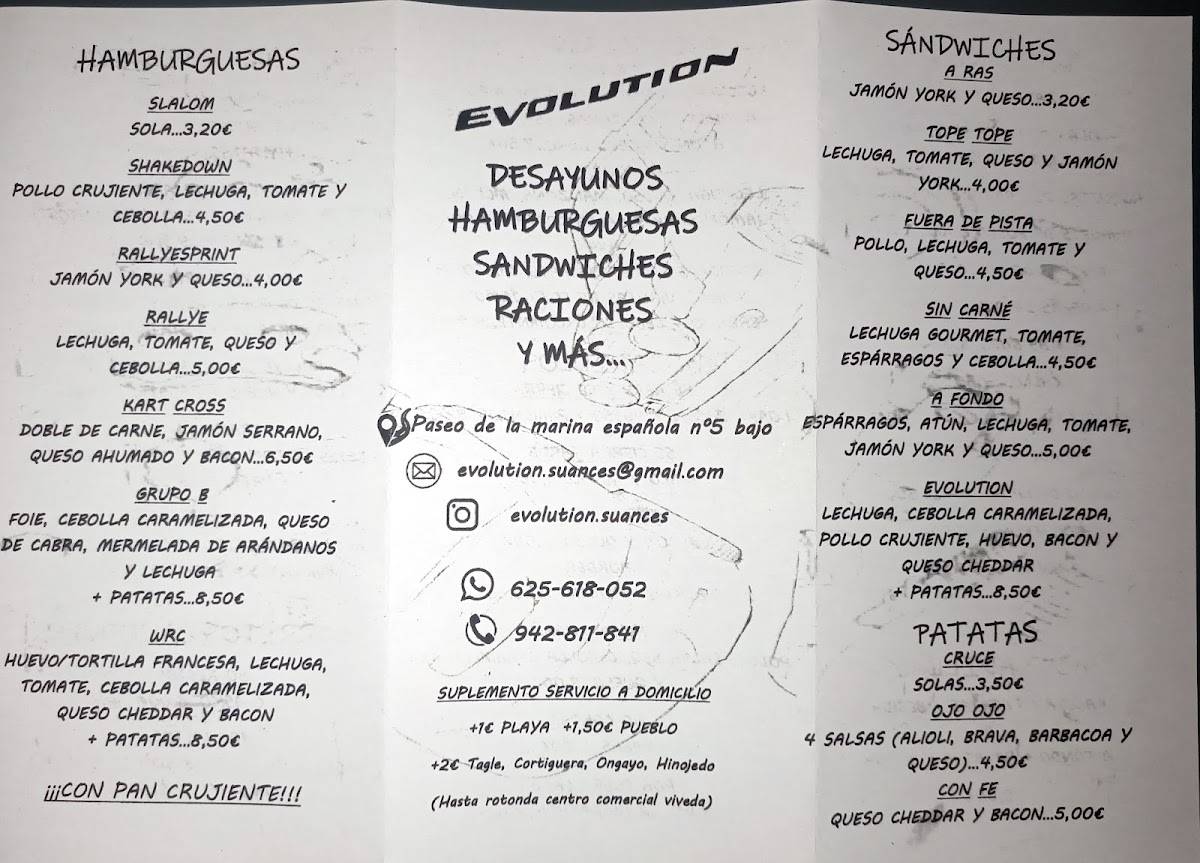 HAMBURGUESAS
SLALOM
SOLA...3,20€
SHAKEDOWN
POLLO CRUJIENTE, LECHUGA, TOMATE Y
CEBOLLA...4,50€
RALLYESPRINT
JAMÓN YORK Y QUESO...4,00€
RALLYE
LECHUGA, TOMATE, QUESO Y
CEBOLLA...5,00€
KART CROSS
DOBLE DE CARNE, JAMÓN SERRANO,
QUESO AHUMADO Y BACON...6,50€
GRUPO B
FOIE, CEBOLLA CARAMELIZADA, QUESO
DE CABRA, MERMELADA DE ARÁNDANOS
Y LECHUGA
+ PATATAS...8,50€
WRC
HUEVO/TORTILLA FRANCESA, LECHUGA,
TOMATE, CEBOLLA CARAMELIZADA,
QUESO CHEDDAR Y BACON
+ PATATAS...8,50€
¡¡¡CON PAN CRUJIENTE!!!
EVOLUTION
DESAYUNOS
HAMBURGUESAS
SANDWICHES
RACIONES
Y MÁS...
Paseo de la marina española nº5 bajo
evolution.suances@gmail.com
evolution.suances
625-618-052
942-811-841
SUPLEMENTO SERVICIO A DOMICILIO
+1€ PLAYA +1,50€ PUEBLO
+2€ Tagle, Cortiguera, Ongayo, Hinojedo
(Hasta rotonda centro comercial viveda)
SÁNDWICHES
A RAS
JAMÓN YORK Y QUESO...3,20€
TOPE TOPE
LECHUGA, TOMATE, QUESO Y JAMÓN
YORK...4,00€
FUERA DE PISTA
POLLO, LECHUGA, TOMATE Y
QUESO...4,50€
SIN CARNÉ
LECHUGA GOURMET, TOMATE,
ESPÁRRAGOS Y CEBOLLA...4,50€
A FONDO
ESPÁRRAGOS, ATÚN, LECHUGA, TOMATE,
JAMÓN YORK Y QUESO...5,00€
EVOLUTION
LECHUGA, CEBOLLA CARAMELIZADA,
POLLO CRUJIENTE, HUEVO, BACON Y
QUESO CHEDDAR
+ PATATAS...8,50€
PATATAS
CRUCE
SOLAS...3,50€
OJO OJO
4 SALSAS (ALIOLI, BRAVA, BARBACOA Y
QUESO)...4,50€
CON FE
QUESO CHEDDAR Y BACON...5,00€